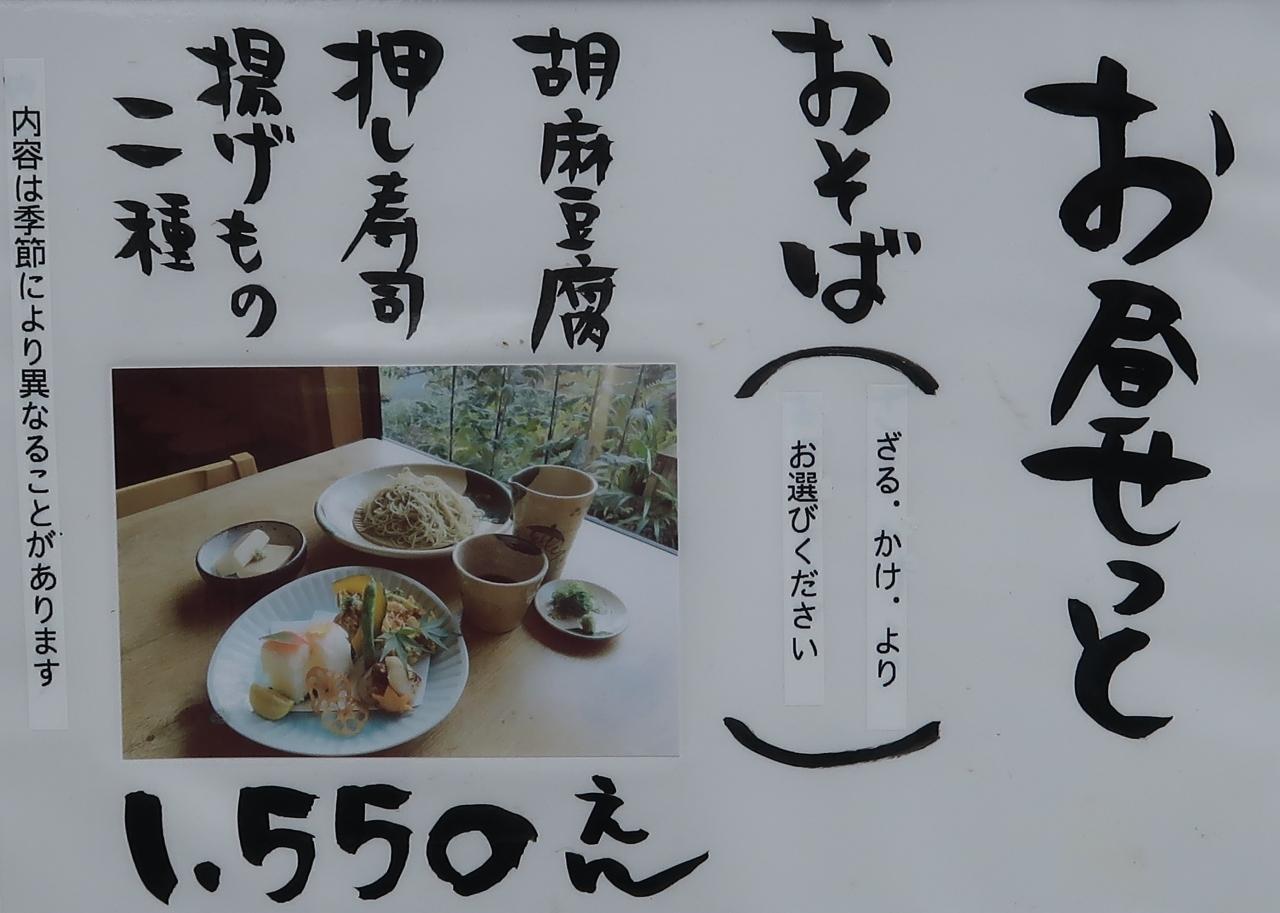 お昼せっと
おそば
(ざる．かけ．より
お選びください)
胡麻豆腐
押し寿司
揚げもの
二種
内容は季節により異なることがあります
1.550えん